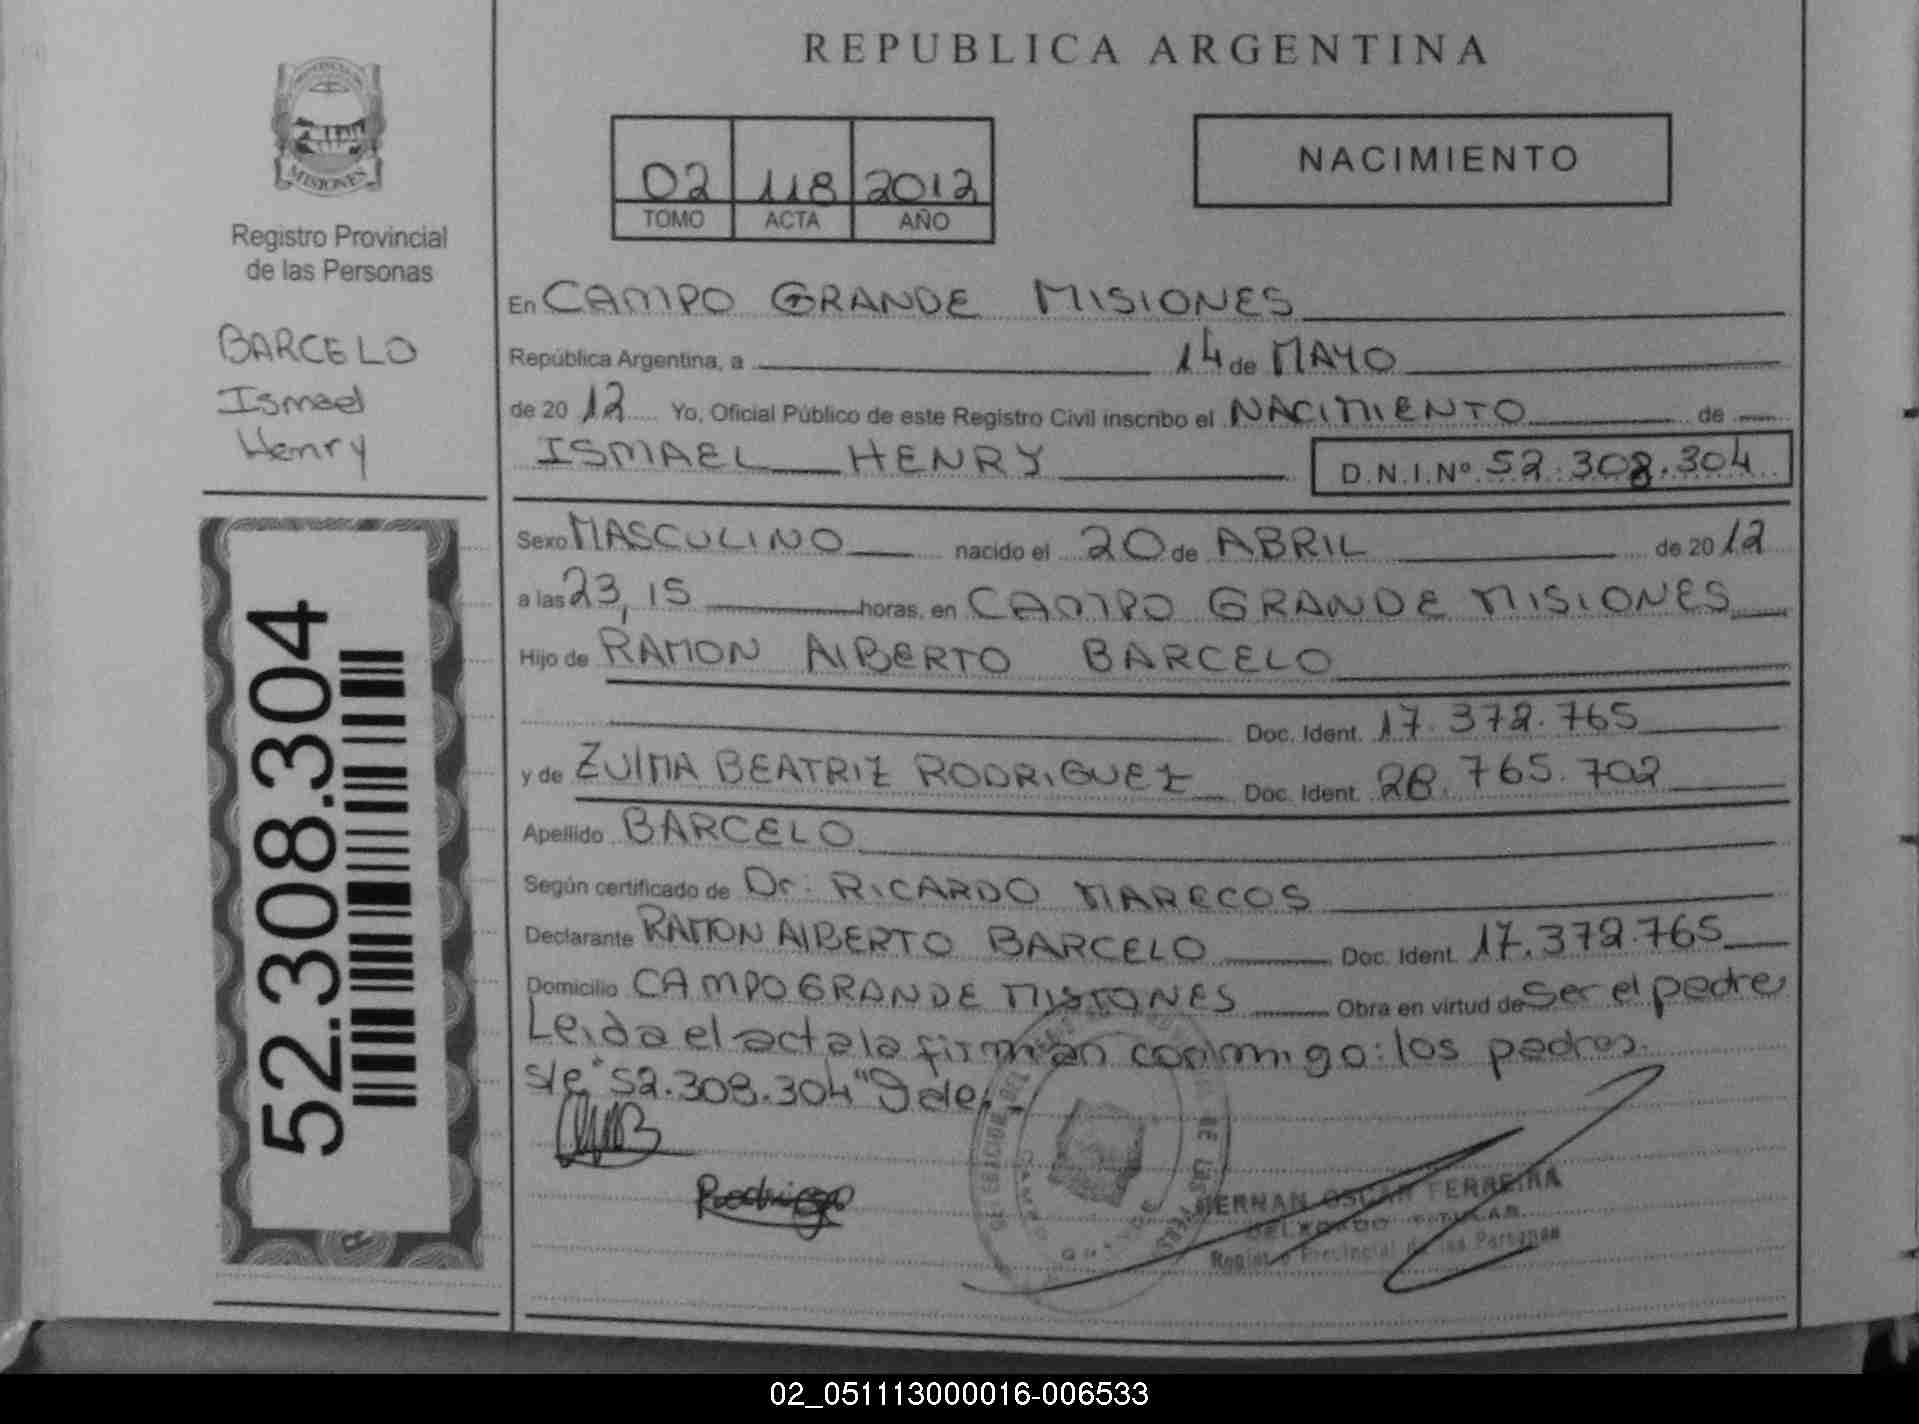 REPUBLICA ARGENTINA
PROVINCIA DE
MISIONES
Registro Provincial
de las Personas
BARCELO
Ismael
Henry
52.308.304
02 118 2012
TOMO ACTA AÑO
NACIMIENTO
En CAMPO GRANDE MISIONES
República Argentina, a 14 de MAYO
de 2012 Yo, Oficial Público de este Registro Civil inscribo el NACIMIENTO de
ISMAEL HENRY D.N.I.Nº 52.308.304
Sexo MASCULINO nacido el 20 de ABRIL de 2012
a las 23,15 horas, en CAMPO GRANDE MISIONES
Hijo de RAMON AlBERTO BARCELO
Doc. Ident. 17.372.765
y de ZUlMA BEATRIZ RODRIGUEZ Doc. Ident. 28.765.702
Apellido BARCELO
Según certificado de Dr: RICARDO MARECOS
Declarante RAMON AlBERTO BARCELO Doc. Ident. 17.372.765
Domicilio CAMPO GRANDE MISIONES Obra en virtud de Ser el padre
Leida el acta la firman conmigo: los padres.
s/e "52.308.304" Vale
Rodrigo
HERNAN OSCAR FERREIRA
DELEGADO TITULAR
Registro Provincial de las Personas
02_051113000016-006533